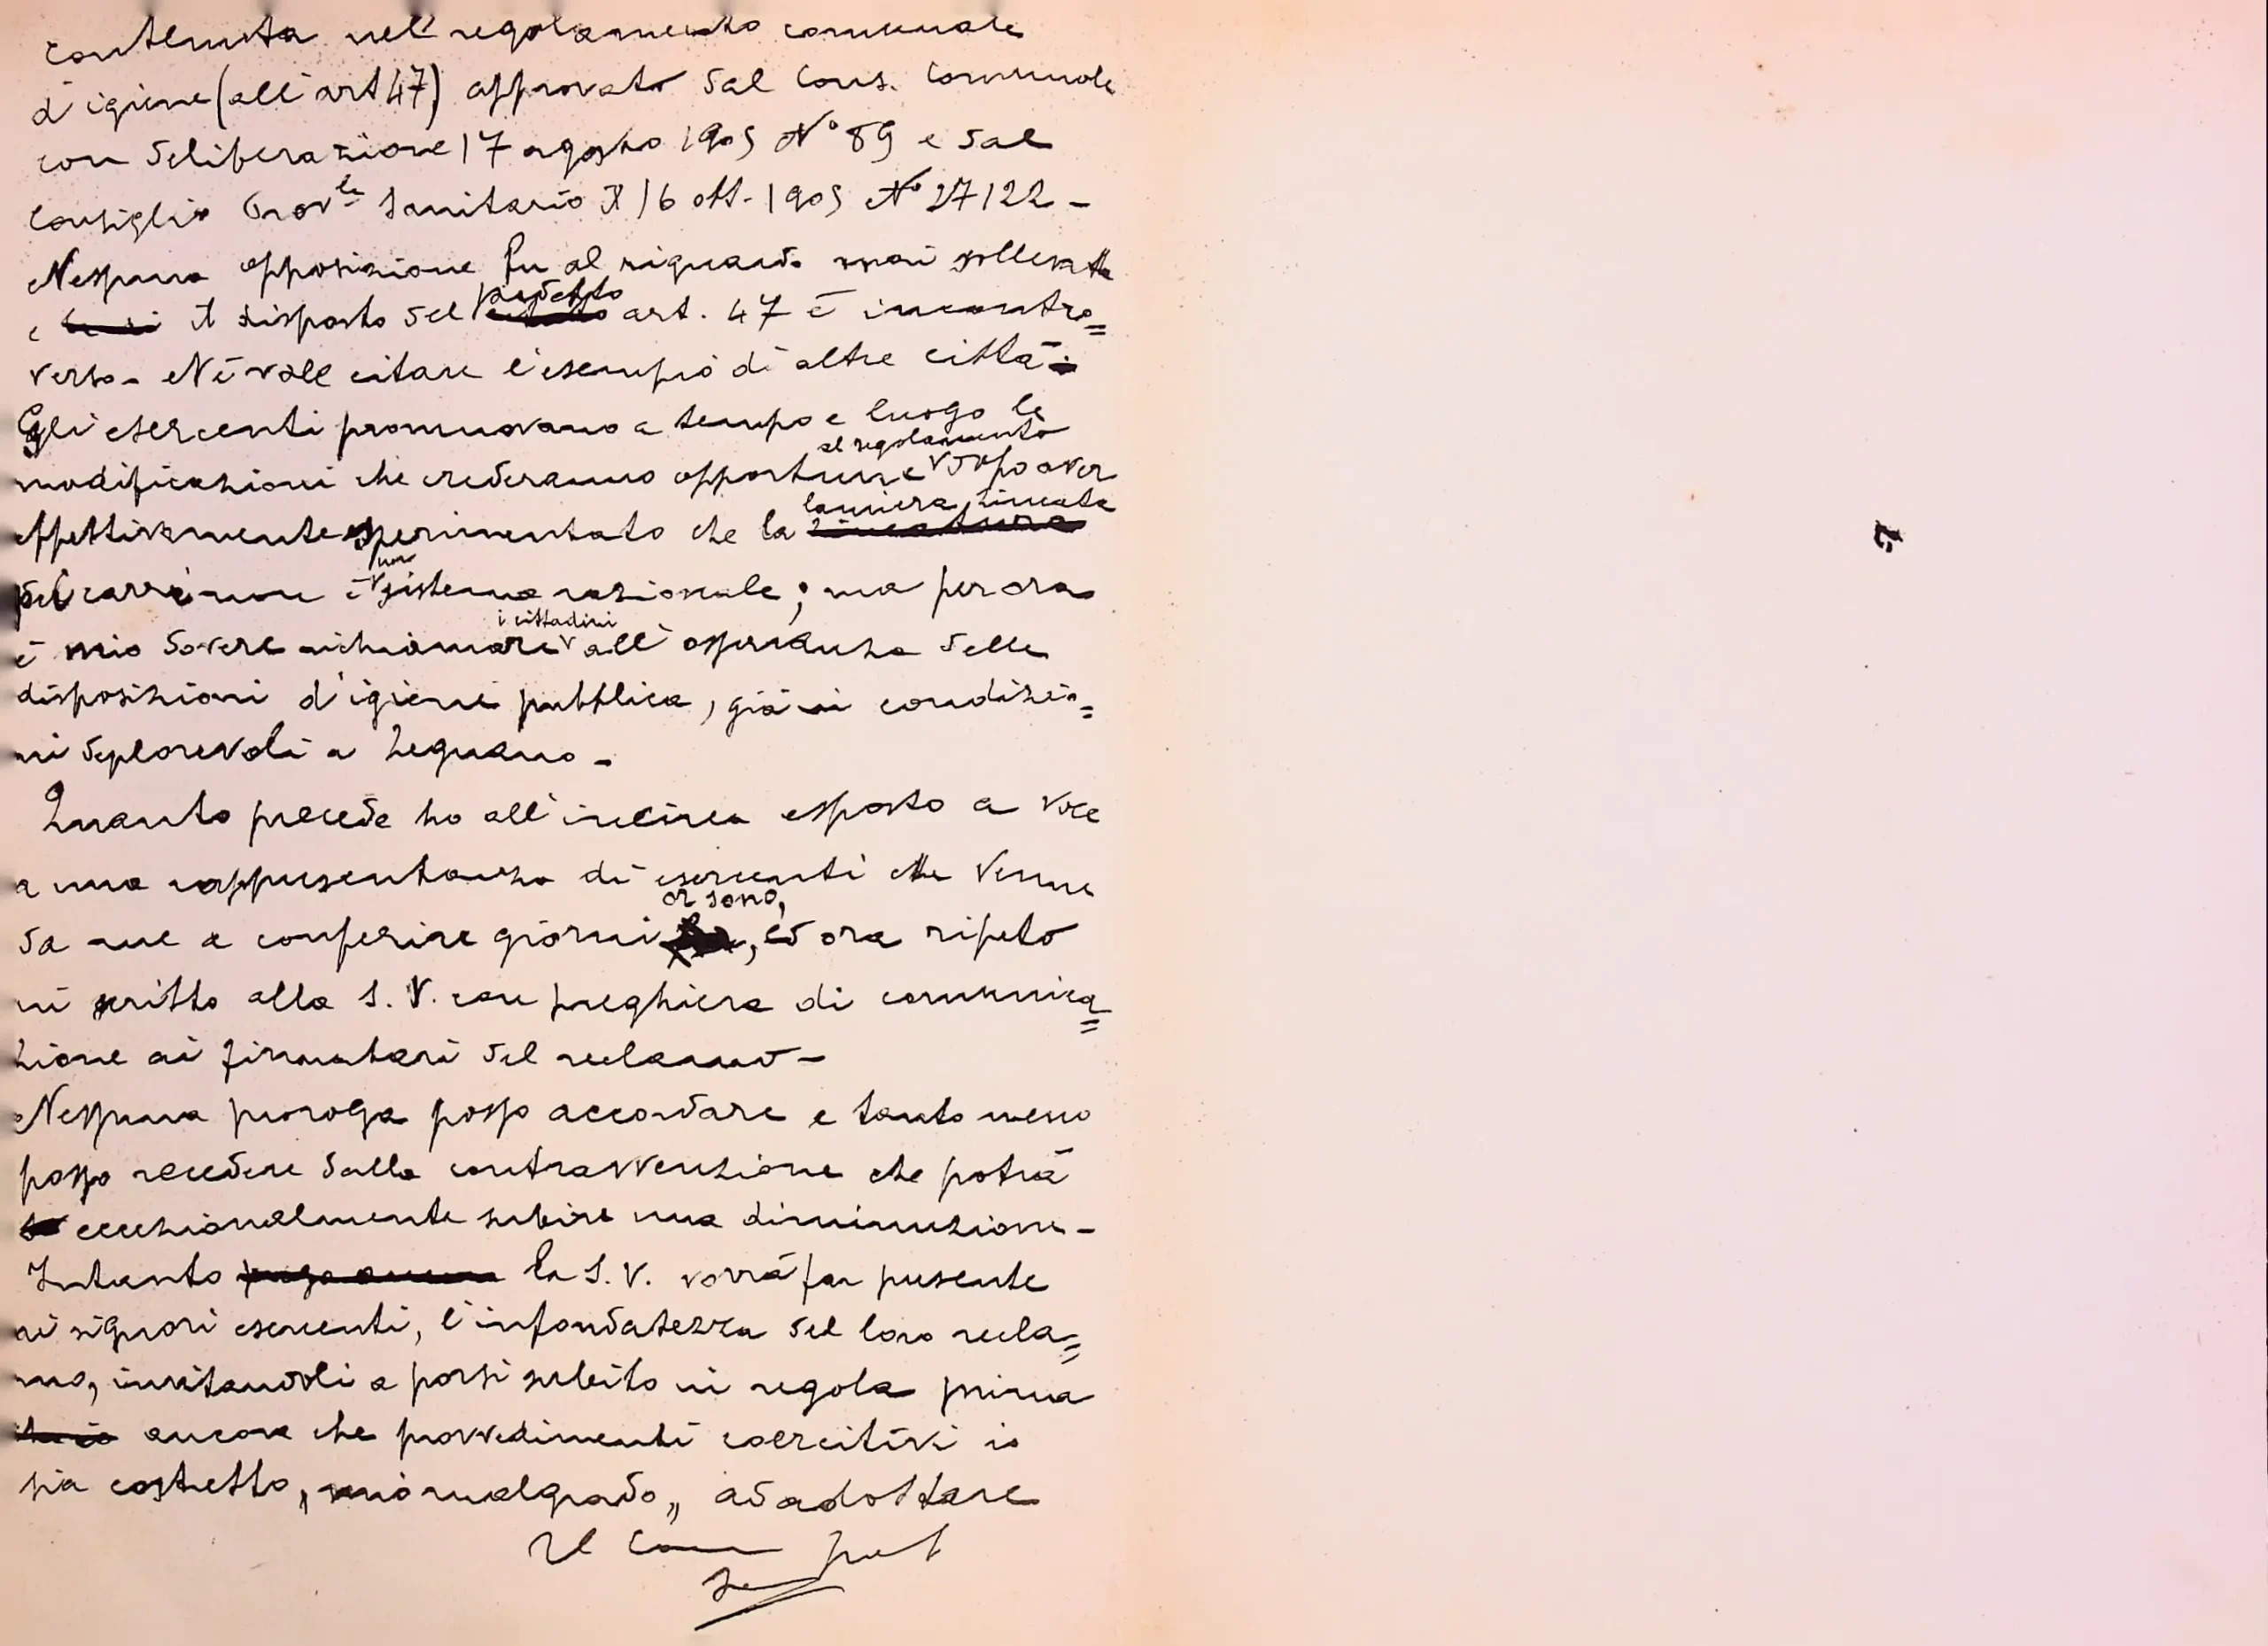 contenuta nell'regolamento comunale
d'igiene (all'art 47) approvato dal Cons. Comunale
con deliberazione 17 agosto 1905 N° 89 e dal
Consiglio Prov.le Sanitario il 16 ott. 1905 N° 27122 -
Nessuna opposizione fu al riguardo mai sollevata
e il disposto del predetto art. 47 è incontro=
verso - Nè vale citare l'esempio di altre città.
Gli esercenti promuovano a tempo e luogo le
al regolamento
modificazioni che crederanno opportune dopo aver
lamiera zincata
effettivamente esperimentato che la
pei carri non è un sistema razionale; ma per ora
i cittadini
è mio dovere richiamare all'osservanza delle
disposizioni d'igiene pubblica, già in condizio=
ni deplorevoli a Legnano -
Quanto precede ho all'incirca esposto a voce
a una rappresentanza di esercenti che venne
or sono,
da me a conferire giorni , ed ora ripeto
in scritto alla S. V. con preghiera di comunica=
zione ai firmatari del reclamo -
Nessuna proroga posso accordare e tanto meno
posso recedere dalla contravvenzione che potrà
eccezionalmente subire una diminuzione -
Intanto la S. V. vorrà far presente
ai signori esercenti, l'infondatezza del loro recla=
mo, invitandoli a porsi subito in regola prima
ancora che provvedimenti coercitivi io
sia costretto, mio malgrado, ad adottare
Il